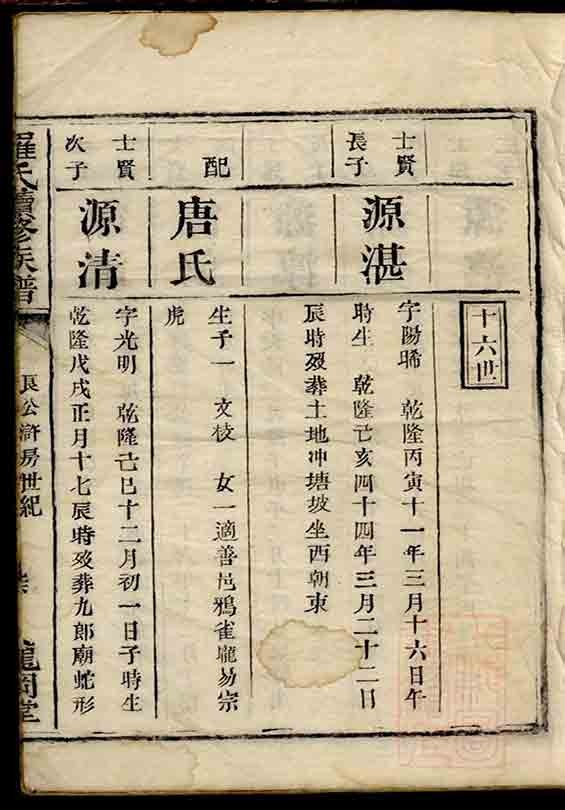 十六世
士賢
長子
源湛
字陽晞 乾隆丙寅十一年三月十六日午
時生 乾隆己亥四十四年三月二十二日
辰時歿葬土地冲塘坡坐西朝東
配
唐氏
生子一 文校 女一適善邑鴉雀龐易宗
虎
士賢
次子
源清
字光明 乾隆己巳十二月初一日子時生
乾隆戊戌正月十七辰時歿葬九郎廟蛇形
羅氏續修族譜
良公滸房世紀
龍岡堂